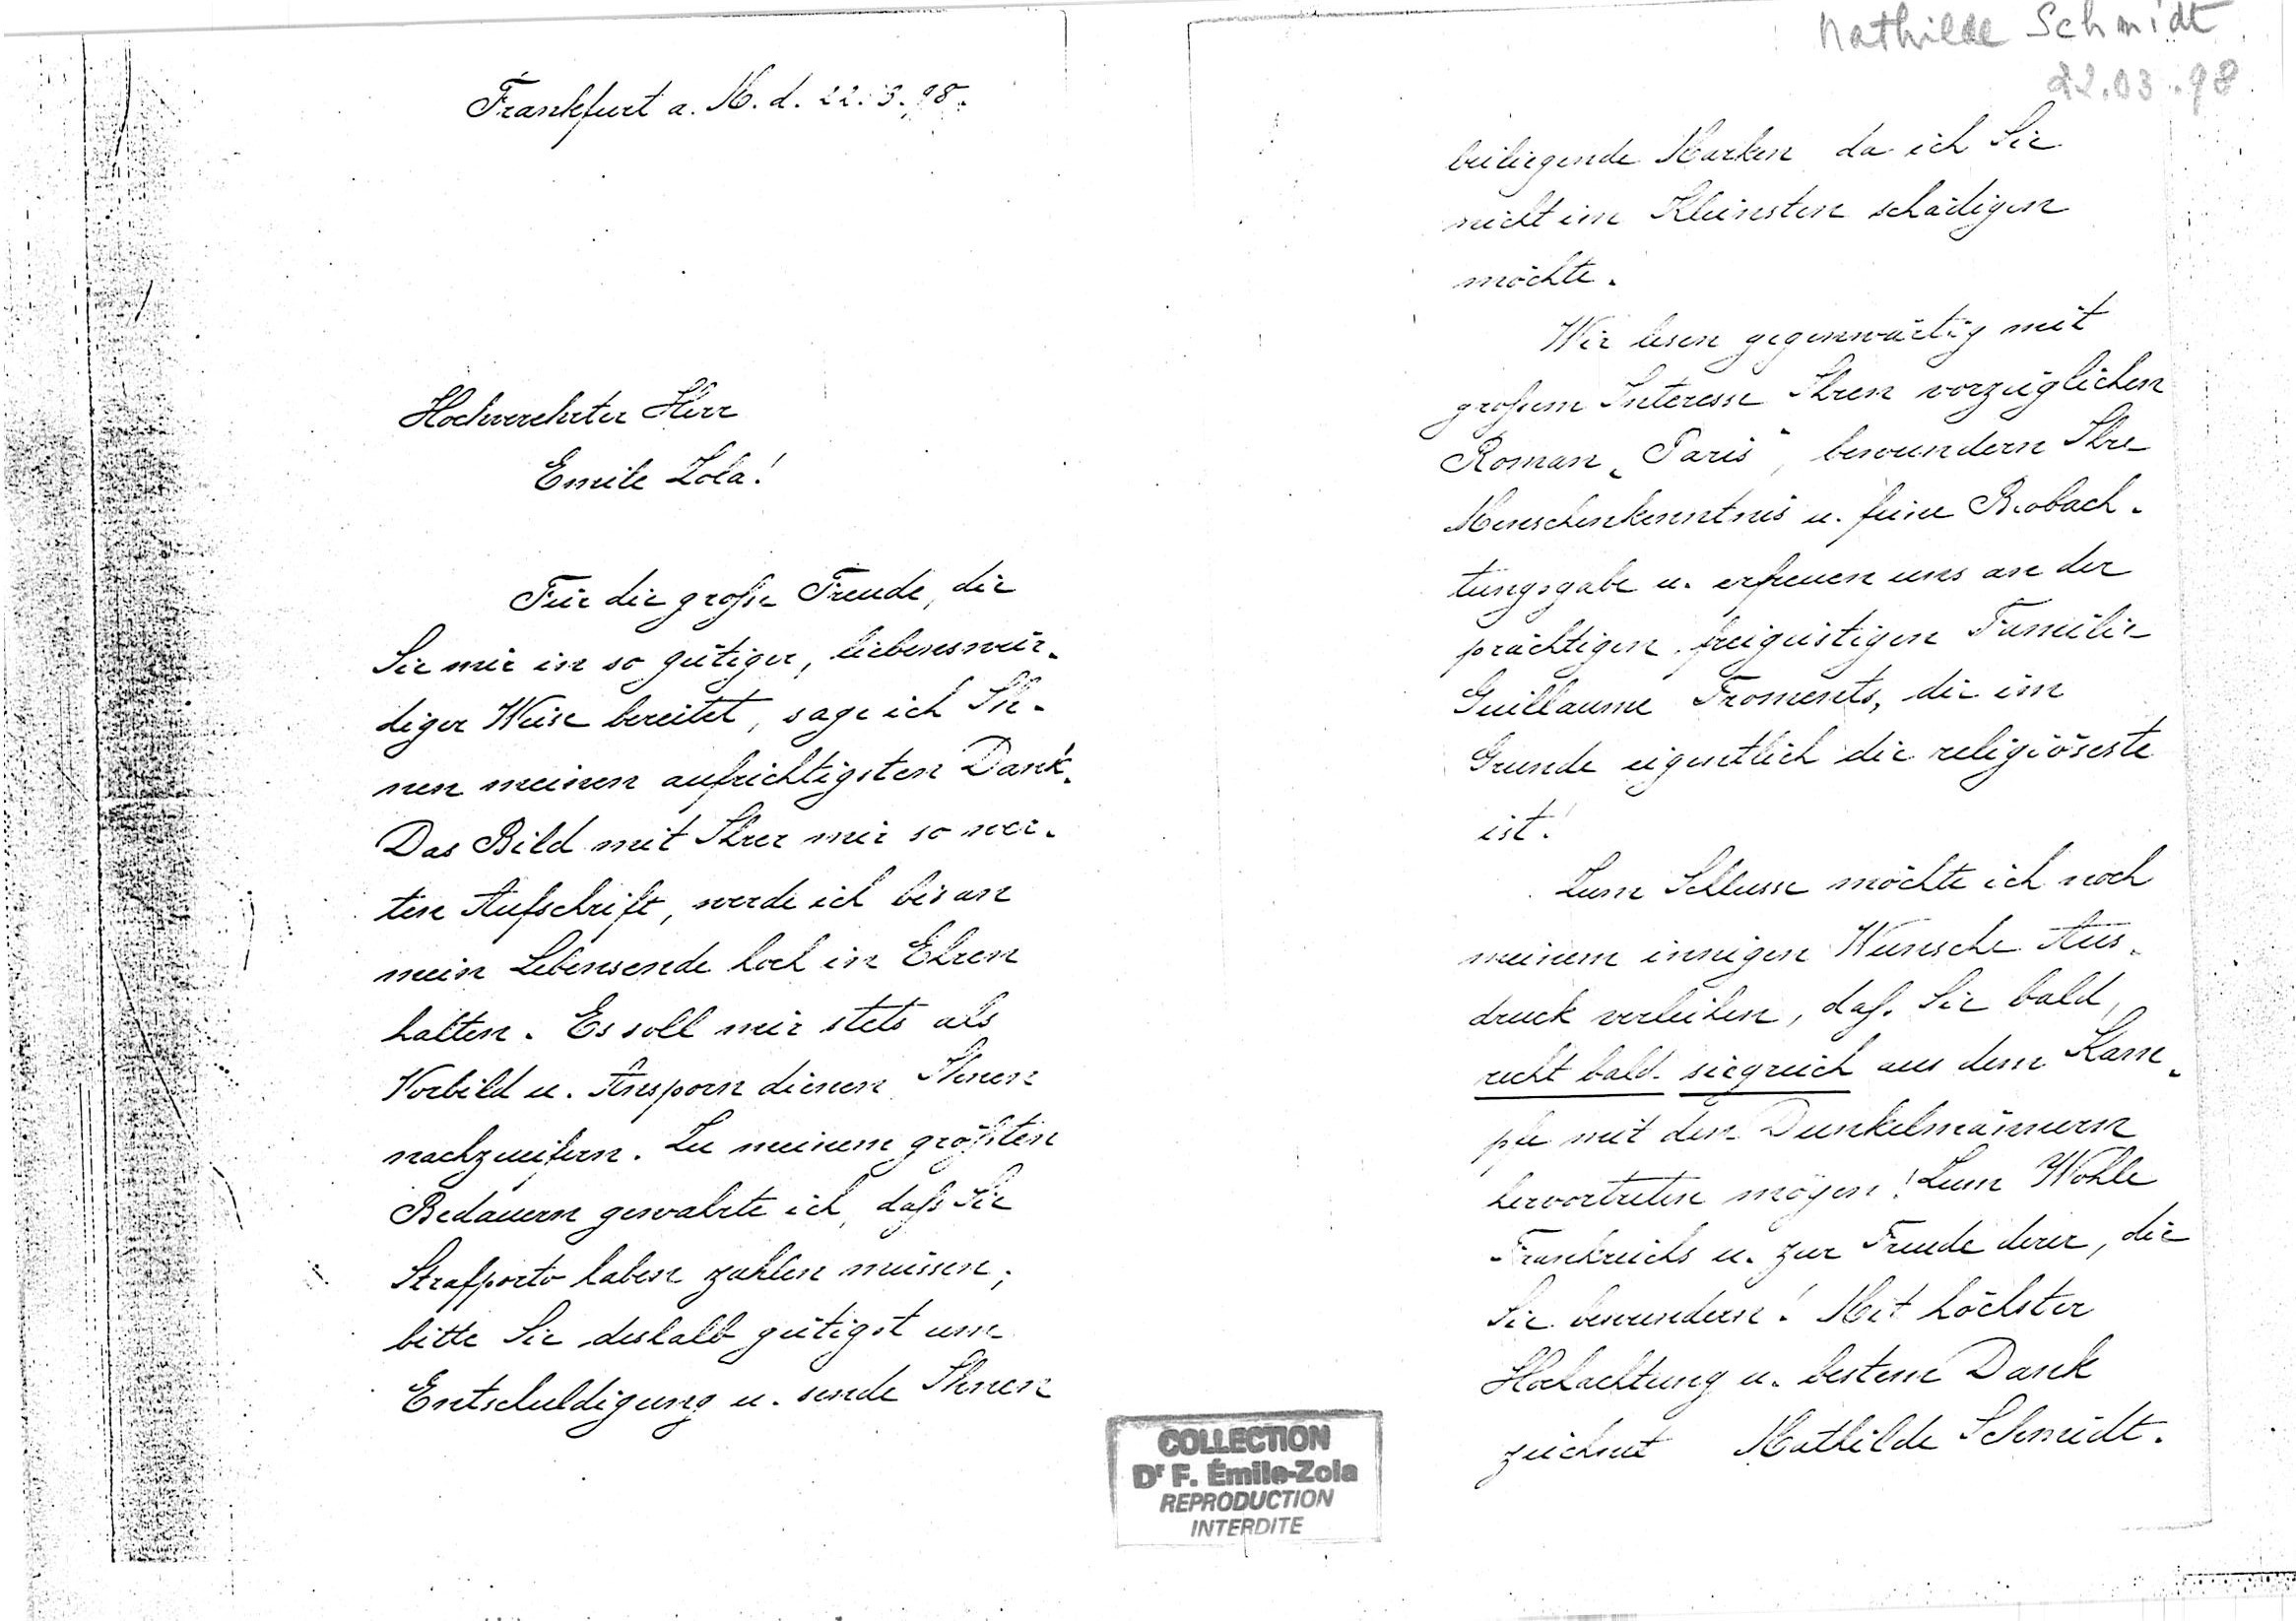 Frankfurt a. M. d. 22.3.98.
Hochverehrter Herr
Emile Zola!
Für die große Freude, die
Sie mir in so gütiger, liebenswür-
diger Weise bereitet, sage ich Ih-
nen meinen aufrichtigsten Dank.
Das Bild mit Ihrer mir so wer-
ten Aufschrift, werde ich bis an
mein Lebensende hoch in Ehren
halten. Es soll mir stets als
Vorbild u. Ansporn dienen Ihnen
nachzueifern. Zu meinem größten
Bedauern gewahrte ich, daß Sie
Strafporto haben zahlen müssen;
bitte Sie deshalb gütigst um
Entschuldigung u. sende Ihnen
Mathilde Schmidt
22.03.98
beiliegende Marken da ich Sie
nicht im Kleinsten schädigen
möchte.
Wir lesen gegenwärtig mit
großem Interesse Ihren vorzüglichen
Roman „Paris“, bewundern Ihre
Menschenkenntnis u. feine Beobach-
tungsgabe u. erfreuen uns an der
prächtigen, freigeistigen Familie
Guillaume Froments, die im
Grunde eigentlich die religiöseste
ist!
Zum Schlusse möchte ich noch
meinem innigen Wunsche Aus-
druck verleihen, daß Sie bald,
recht bald siegreich aus dem Kam-
pfe mit den Dunkelmännern
hervortreten mögen! Zum Wohle
Frankreichs u. zur Freude derer, die
Sie bewundern! Mit höchster
Hochachtung u. bestem Dank
zeichnet Mathilde Schmidt.
COLLECTION
Dr F. Émile-Zola
REPRODUCTION
INTERDITE